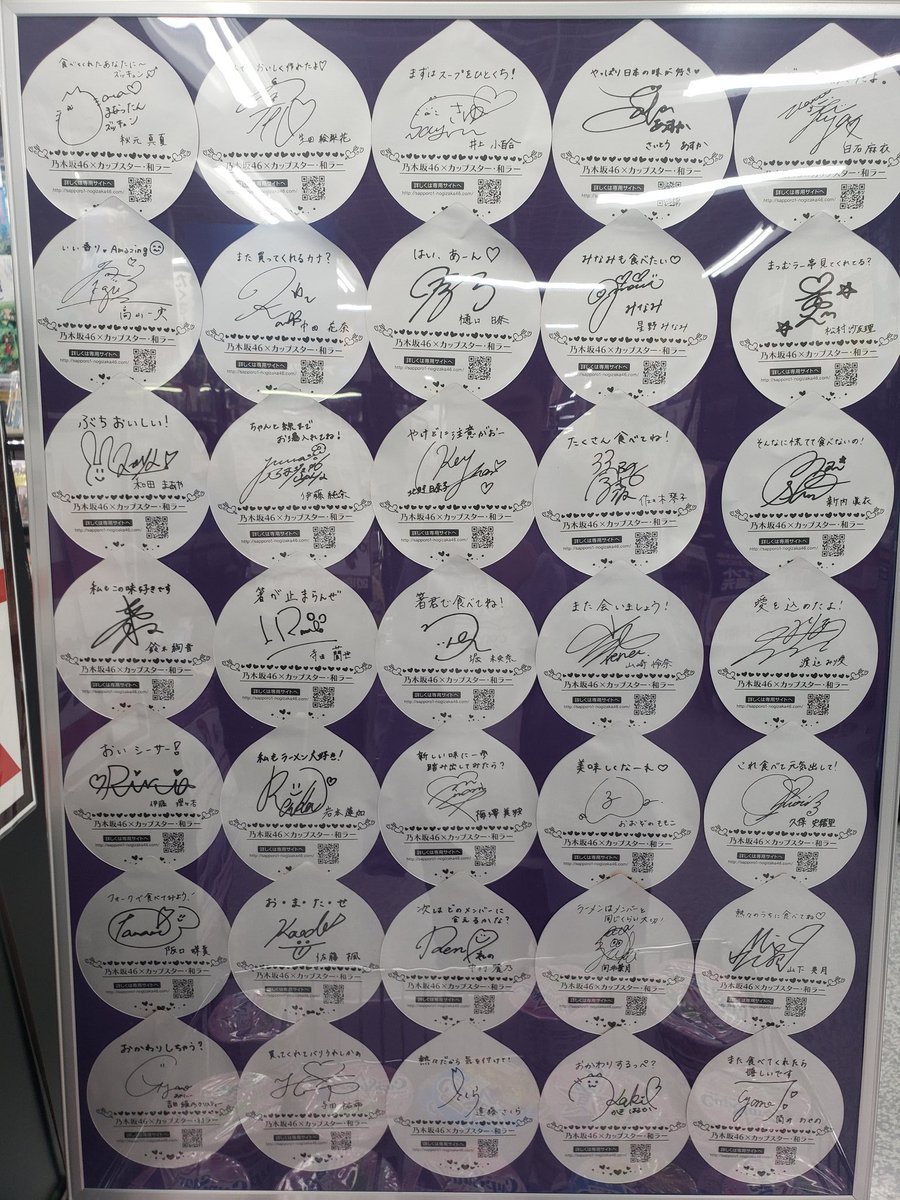 食べてくれたあなたに〜
ズッキュン
まなったん
ズッキュン
秋元 真夏
乃木坂46×カップスター・和ラー
詳しくは専用サイトへ
http://sapporo1-nogizaka46.com/
おいしく作れたよ♡
生田 絵梨花
乃木坂46×カップスター・和ラー
詳しくは専用サイトへ
http://sapporo1-nogizaka46.com/
まずはスープをひとくち!
さゆ
井上 小百合
乃木坂46×カップスター・和ラー
詳しくは専用サイトへ
http://sapporo1-nogizaka46.com/
やっぱり日本の味が好き♥
あすか
さいとう あすか
乃木坂46×カップスター・和ラー
詳しくは専用サイトへ
http://sapporo1-nogizaka46.com/
白石 麻衣
乃木坂46×カップスター・和ラー
詳しくは専用サイトへ
http://sapporo1-nogizaka46.com/
いい香り。Amazing
高山 一実
乃木坂46×カップスター・和ラー
詳しくは専用サイトへ
http://sapporo1-nogizaka46.com/
また買ってくれるカナ?
中田 花奈
乃木坂46×カップスター・和ラー
詳しくは専用サイトへ
http://sapporo1-nogizaka46.com/
はい、あーん♡
樋口 日奈
乃木坂46×カップスター・和ラー
詳しくは専用サイトへ
http://sapporo1-nogizaka46.com/
みなみも食べたい♡
みなみ
星野 みなみ
乃木坂46×カップスター・和ラー
詳しくは専用サイトへ
http://sapporo1-nogizaka46.com/
まつむラー 見てくれてる?
松村 沙友理
乃木坂46×カップスター・和ラー
詳しくは専用サイトへ
http://sapporo1-nogizaka46.com/
ぶちおいしい!
和田 まあや
乃木坂46×カップスター・和ラー
詳しくは専用サイトへ
http://sapporo1-nogizaka46.com/
ちゃんと線まで
お湯入れてね!
伊藤 純奈
乃木坂46×カップスター・和ラー
詳しくは専用サイトへ
http://sapporo1-nogizaka46.com/
やけどに注意がおー
北野 日奈子
乃木坂46×カップスター・和ラー
詳しくは専用サイトへ
http://sapporo1-nogizaka46.com/
たくさん食べてね!
佐々木 琴子
乃木坂46×カップスター・和ラー
詳しくは専用サイトへ
http://sapporo1-nogizaka46.com/
そんなに慌てて食べないの!
新内 眞衣
乃木坂46×カップスター・和ラー
詳しくは専用サイトへ
http://sapporo1-nogizaka46.com/
私もこの味好きです
鈴木 絢音
乃木坂46×カップスター・和ラー
詳しくは専用サイトへ
http://sapporo1-nogizaka46.com/
箸が止まらんぜ
寺田 蘭世
乃木坂46×カップスター・和ラー
詳しくは専用サイトへ
http://sapporo1-nogizaka46.com/
箸君で食べてね!
堀 未央奈
乃木坂46×カップスター・和ラー
詳しくは専用サイトへ
http://sapporo1-nogizaka46.com/
また会いましょう!
山崎 怜奈
乃木坂46×カップスター・和ラー
詳しくは専用サイトへ
http://sapporo1-nogizaka46.com/
愛を込めたよ!
渡辺 みり愛
乃木坂46×カップスター・和ラー
詳しくは専用サイトへ
http://sapporo1-nogizaka46.com/
おいシーサー!
Riria
伊藤 理々杏
乃木坂46×カップスター・和ラー
詳しくは専用サイトへ
http://sapporo1-nogizaka46.com/
私もラーメン大好き!
岩本 蓮加
乃木坂46×カップスター・和ラー
詳しくは専用サイトへ
http://sapporo1-nogizaka46.com/
新しい味に一歩
踏み出してみたら?
梅澤 美波
乃木坂46×カップスター・和ラー
詳しくは専用サイトへ
http://sapporo1-nogizaka46.com/
美味しくなーれ♡
おおぞの ももこ
乃木坂46×カップスター・和ラー
詳しくは専用サイトへ
http://sapporo1-nogizaka46.com/
これ食べて元気出して!
久保 史緒里
乃木坂46×カップスター・和ラー
詳しくは専用サイトへ
http://sapporo1-nogizaka46.com/
フォークで食べてみよう!
阪口 珠美
乃木坂46×カップスター・和ラー
詳しくは専用サイトへ
http://sapporo1-nogizaka46.com/
お・ま・た・せ
Kaede
佐藤 楓
乃木坂46×カップスター・和ラー
詳しくは専用サイトへ
http://sapporo1-nogizaka46.com/
次はどのメンバーに
会えるかな?
れの
中村 麗乃
乃木坂46×カップスター・和ラー
詳しくは専用サイトへ
http://sapporo1-nogizaka46.com/
ラーメンはメンバーと
同じくらい大切!
向井 葉月
乃木坂46×カップスター・和ラー
詳しくは専用サイトへ
http://sapporo1-nogizaka46.com/
熱々のうちに食べてね♡
山下 美月
乃木坂46×カップスター・和ラー
詳しくは専用サイトへ
http://sapporo1-nogizaka46.com/
おかわりしちゃう?
吉田 綾乃クリスティー
乃木坂46×カップスター・和ラー
詳しくは専用サイトへ
http://sapporo1-nogizaka46.com/
買ってくれてバリうれしかの
与田 祐希
乃木坂46×カップスター・和ラー
詳しくは専用サイトへ
http://sapporo1-nogizaka46.com/
熱々だから気を付けて!
さくら
遠藤 さくら
乃木坂46×カップスター・和ラー
詳しくは専用サイトへ
http://sapporo1-nogizaka46.com/
おかわりするっぺ?
Kaki
かき はるか
乃木坂46×カップスター・和ラー
詳しくは専用サイトへ
http://sapporo1-nogizaka46.com/
また食べてくれたら
嬉しいです
乃木坂46×カップスター・和ラー
詳しくは専用サイトへ
http://sapporo1-nogizaka46.com/